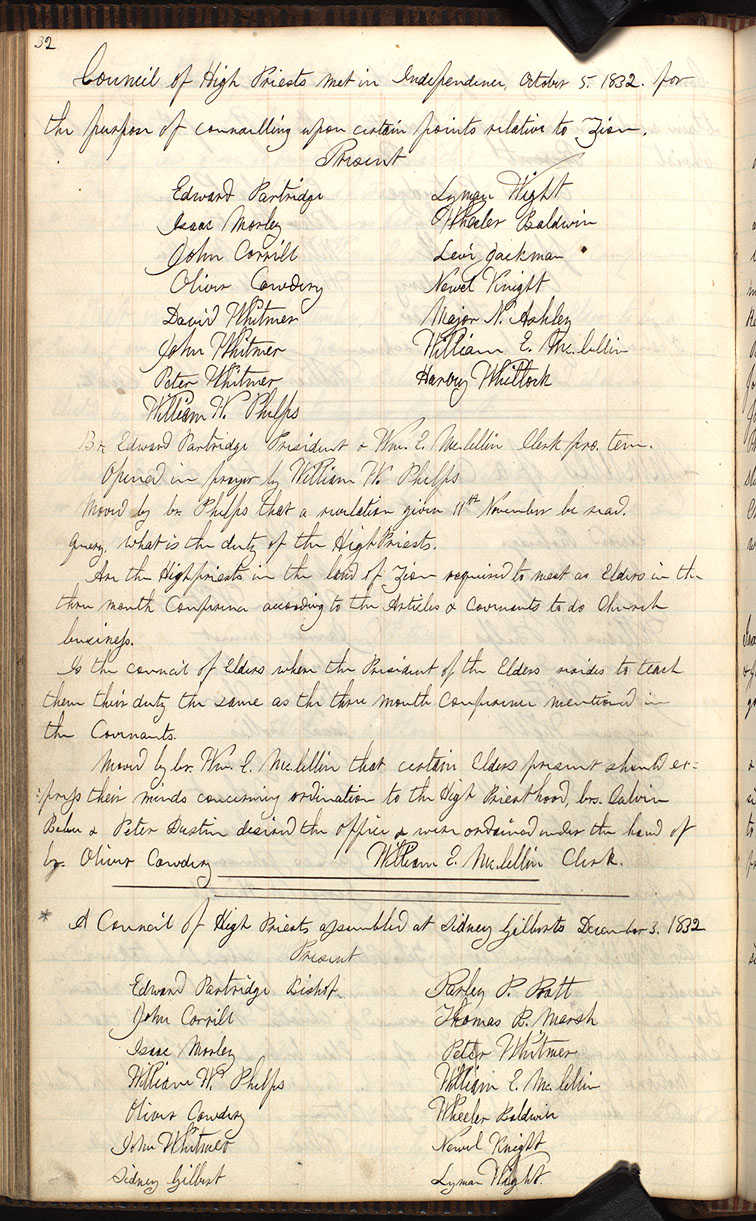 32
Council of High Priests met in Independence, October 5. 1832. for
the purpose of councilling upon certain points relative to Zion.
Present
Edward Partridge
Isaac Morley
John Corrill
Oliver Cowdery
David Whitmer
John Whitmer
Peter Whitmer
William W. Phelps
Lyman Wight
Wheeler Baldwin
Levi Jackman
Newel Knight
Major N. Ashley
William E. Mc.lellin
Harvey Whitlock
Br. Edward Partridge President & Wm. E. Mc.lellin Clerk pro. tem.
Opened in prayer by William W. Phelps
Moved by br. Phelps that a revelation given 11th November be read.
Query, what is the duty of the High Priests.
Are the Highpriests in the land of Zion required to meet as Elders in the
three month Conference according to the Articles & Covenants to do Church
business.
Is the council of Elders where the President of the Elders resides to teach
them their duty the same as the three month Conference mentioned in
the Covenants.
Moved by br. Wm. E. Mc.lellin that certain Elders present should ex=
=press their minds concerning ordination to the High Priesthood, brs. Calvin
Bebee & Peter Dustin desired the office & were ordained under the hand of
br. Oliver Cowdery
William E. Mc.lellin Clerk.
* A Council of High Priests assembled at Sidney Gilberts December 3. 1832
Present
Edward Partridge Bishop.
John Corrill
Isaac Morley
William W. Phelps
Oliver Cowdery
John Whitmer
Sidney Gilbert
Parley P. Pratt
Thomas B. Marsh
Peter Whitmer
William E. Mc.lellin
Wheeler Baldwin
Newel Knight
Lyman Wight.